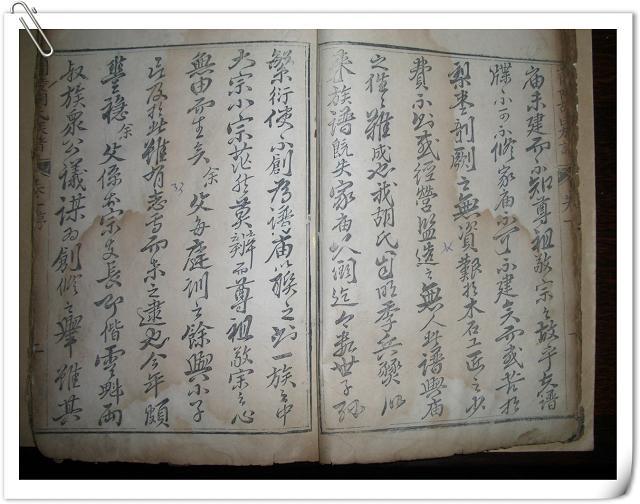 廟未建而不知尊祖敬宗之故乎夫譜
牒不可不修家廟不可不建矣而或苦於
梨棗剞劂之無資艱於木石工匠之少
費不出或經營監造之無人此譜與廟
之往々難成也我胡氏自明季兵燹以
來族譜既失家廟以傾迄今數世子孫
繁衍使不創為譜廟以聯之則一族之中
大宗小宗茫然莫辨而尊祖敬宗之心
無由而生矣余父每庭訓之餘與小子
言及於此雖有志焉而未之逮也今年頗
豐稔余父係大宗支長乃偕雲魁兩
叔族眾公議謀為創修之舉雖其